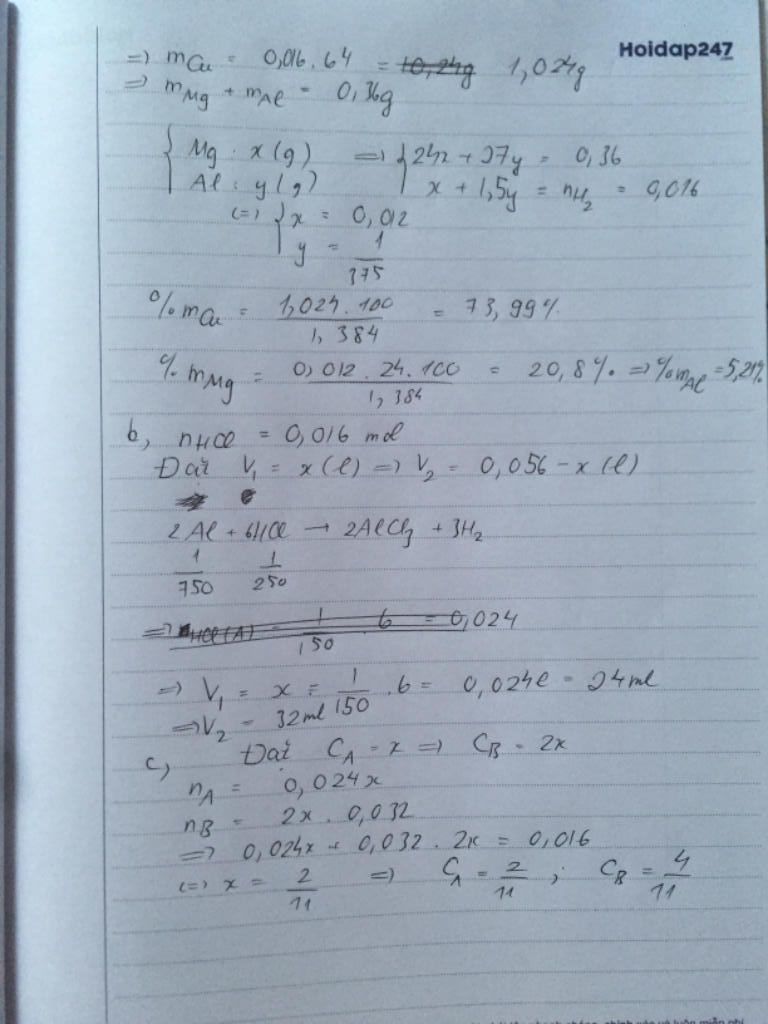 Hoidap247
=) mCu = 0,016.64 = 10,24g 1,024g
=) mMg + mAl = 0,36g
Mg : x (g) =) 24x + 27y = 0,36
Al : y (g) x + 1,5y = nH2 = 0,016
(=) x = 0,012
y = 1/375
%mCu = 1,024.100/1,384 = 73,99%
%mMg = 0,012.24.100/1,384 = 20,8% =) %mAl = 5,21%
b, nHCl = 0,016 mol
Đặt V1 = x (l) =) V2 = 0,056 - x (l)
2Al + 6HCl → 2AlCl3 + 3H2
1/750 1/250
=) nHCl(A) = 1/150 . 6 = 0,024
=) V1 = x = 1/150 . 6 = 0,024l = 24ml
=) V2 = 32ml
c, Đặt CA = x =) CB = 2x
nA = 0,024x
nB = 2x . 0,032
=) 0,024x + 0,032 . 2x = 0,016
(=) x = 2/11 =) CA = 2/11 ; CB = 4/11